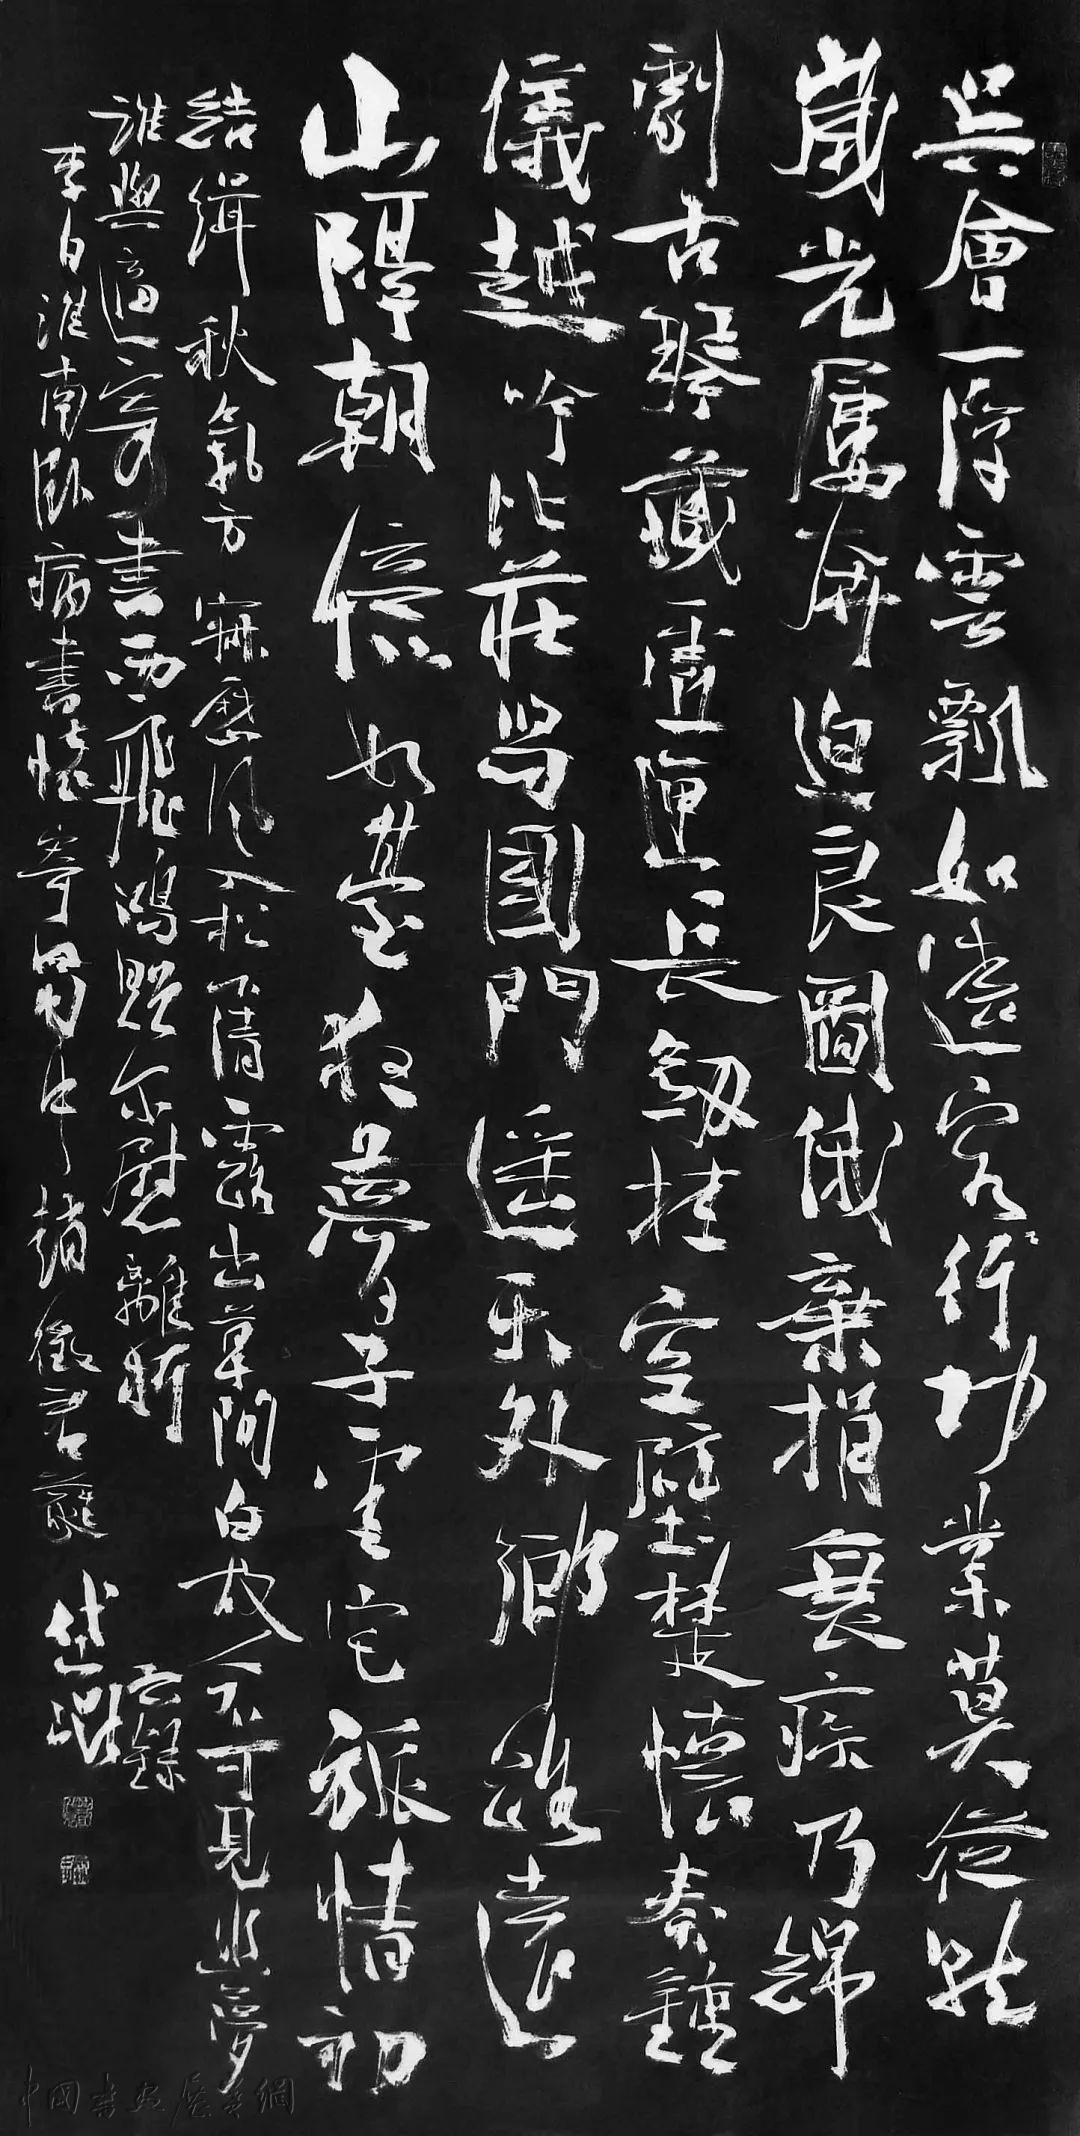 吳會一浮雲飄如遠客行功業莫從就
歲光屢奔迫良圖俄棄捐衰疾乃綿
劇古琴藏虛匣長劍挂空壁楚懷奏鍾
儀越吟比莊舄國門遥天外鄉路遠
山隔朝憶如臺夜夢子雲宅旅情初
結緝秋氣方寂歷風入松下清露出草間白故人不可見幽夢
誰與適寄書西飛鴻贈尔慰離析
李白淮南臥病書懷寄蜀中趙徵君蕤